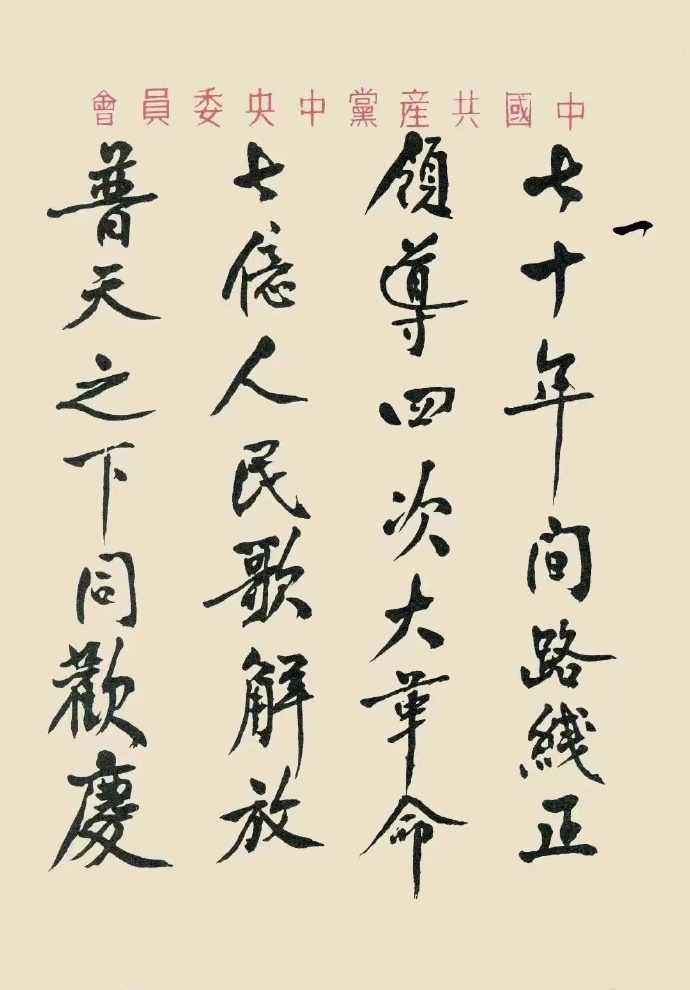 中國共産黨中央委員會
一
七十年间路綫正
领導四次大革命
七億人民歌解放
普天之下同歡慶